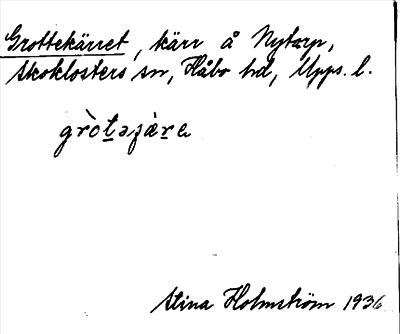 Grottekärret, kärr å Nytorp,
Skoklosters sn, Håbo hd, Upps. l.
grò̀təjæ̀rɛ
Stina Holmström 1936